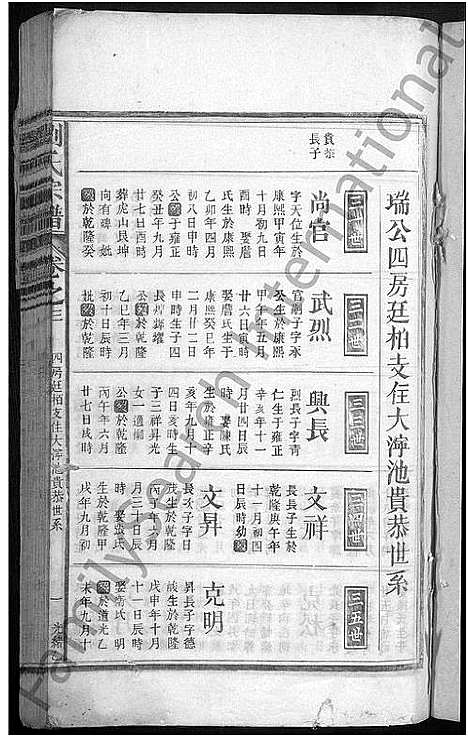 瑞公四房廷柏支住大㴾池貴恭世系
貴恭
長子
三一世
尚官
字天位生於
康熙甲寅年
十月初九日
酉時 娶詹
氏生於康熙
乙卯年四月
初八日申時
公歿于雍正
癸丑年九月
廿七日酉時
葬虎山艮坤
向有碑 妣
歿於乾隆癸
三二世
武烈
官嗣子字承
公生於康熙
甲午年五月
廿六日寅時
娶詹氏生于
康熙癸巳年
二月廿二日
申時生子四
長
公歿於乾隆
乙巳年三月
批歿於乾隆
三三世
興長
烈長子字青
仁生于雍正
辛亥年十一
月廿四日辰
時 娶陳氏
生於雍正辛
亥年九月十
四日亥時生
子三祥昇光
女一適
公歿於乾隆
丙午年六月
廿七日戌時
三四世
文祥
長長子生於
乾隆庚午年
十一月初四
日辰時幼歿
文昇
長次子字日
茂生於乾隆
丙子年六月
月三十日辰
時 娶張氏
生於乾隆甲
戌年九月初
三五世
克明
昇長子字德
峻生於乾隆
戊申年十月
十一日辰時
娶衛氏 明
歿於道光乙
未年九月十
劉氏宗譜
卷之三
四房廷柏支住大㴾池貴恭世系
一
光緒
Family Search International